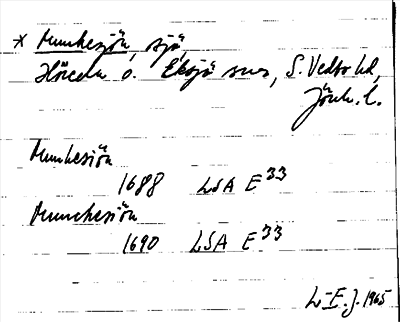 * Munkesjön, sjö,
Höreda o. Eksjö snr, S. Vedbo hd,
Jönk. l.
Munkesiön
1688 LSA E 33
Munckesiön
1690 LSA E 33
L-E. J. 1965